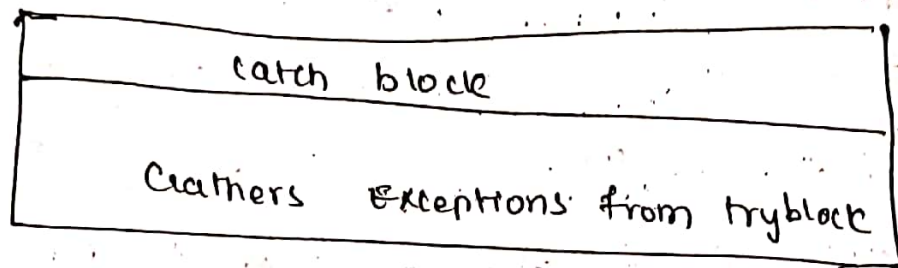 catch block
Gathers Exceptions from tryblock